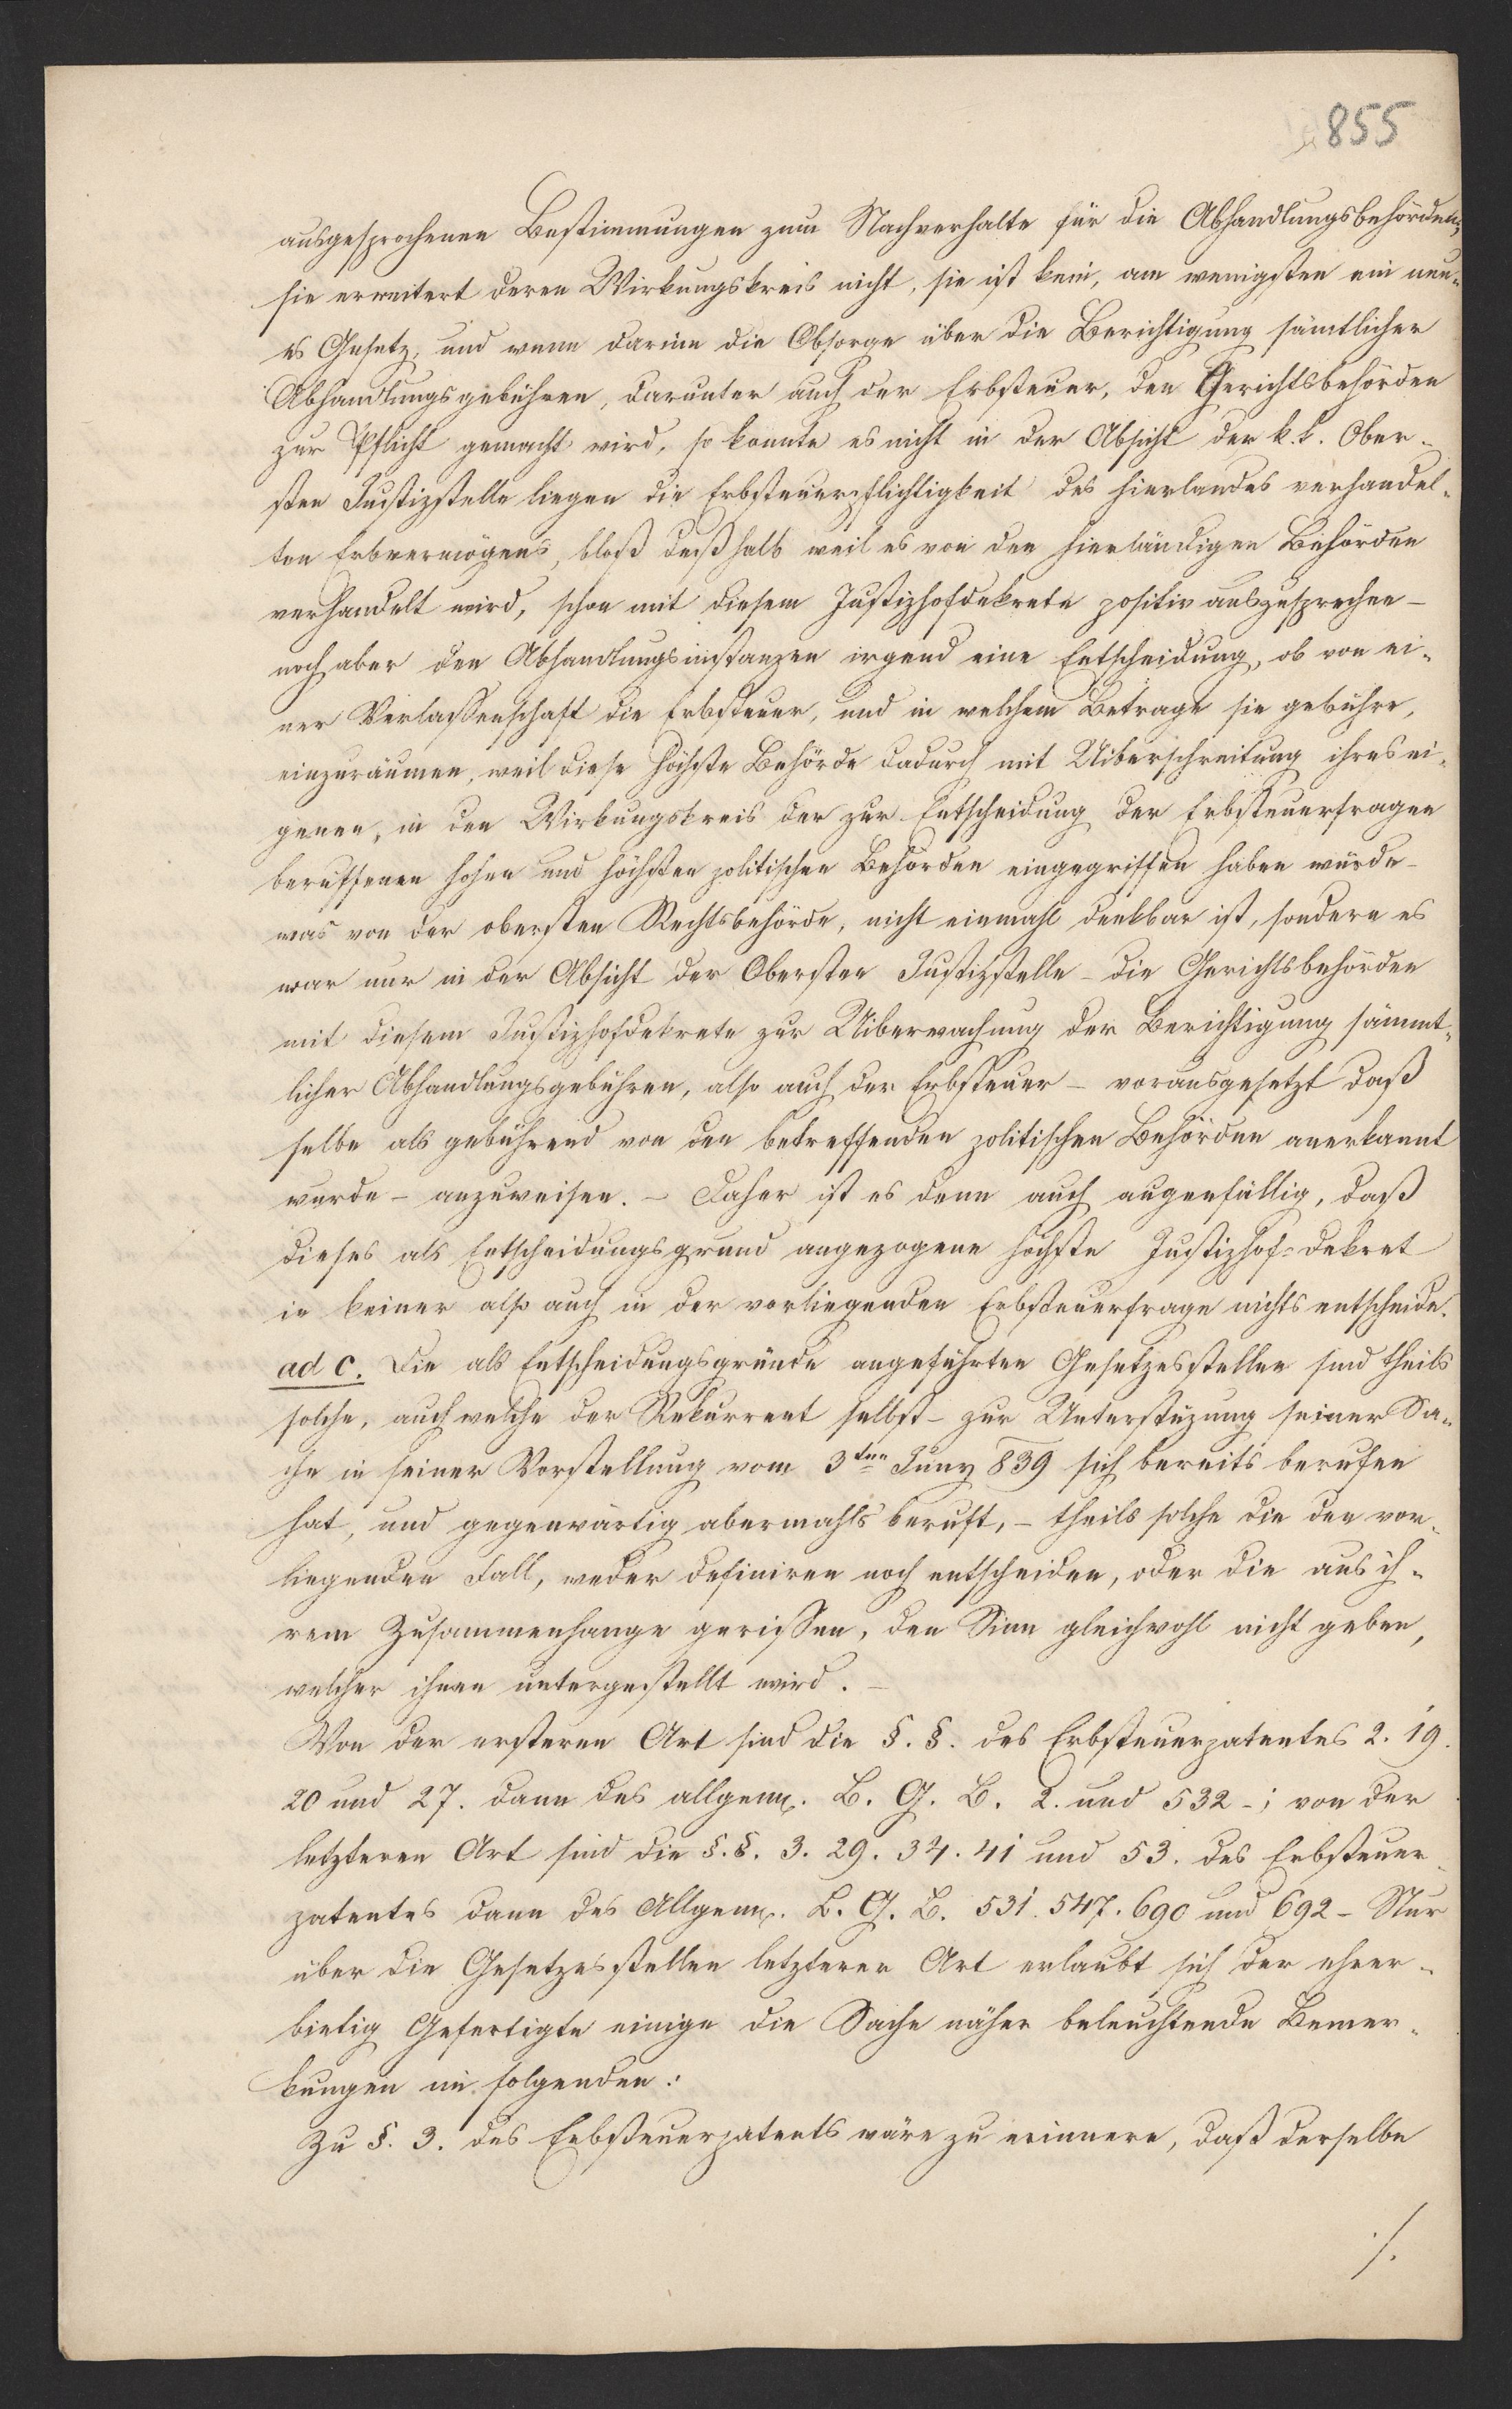 855
ausgesprochenen Bestimmungen zum Nachverhalte für die Abhandlungsbehörden;
sie erweitert deren Wirkungskreis nicht, sie ist kein, am wenigsten ein neu-
es Gesetz, und wenn darinn die Obsorge über die Berichtigung sämtlicher
Abhandlungsgebühren, darunter auch der Erbsteuer, den Gerichtsbehörden
zur Pflicht gemacht wird, so konnte es nicht in der Absicht der k. k. Ober-
sten Justizstelle liegen die Erbsteuerpflichtigkeit des hierlandes verhandel-
ten Erbvermögens, bloß deßhalb weil es von den hierländigen Behörden
verhandelt wird, schon mit diesem Justizhofdekrete positiv auszusprechen –
noch aber den Abhandlungsinstanzen irgend eine Entscheidung, ob von ei-
ner Verlassenschaft die Erbsteuer, und in welchem Betrage sie gebühre,
einzuräumen, weil diese höchste Behörde dadurch mit Uiberschreitung ihres ei-
genen, in den Wirkungskreis der zur Entscheidung der Erbsteuerfragen
beruffenen hohen und höchsten politischen Behörden eingegriffen haben würde –
was von der obersten Rechtsbehörde, nicht einmahl denkbar ist, sondern es
war nur in der Absicht der Obersten Justizstelle – die Gerichtsbehörden
mit diesem Justizhofdekrete zur Uiberwachung der Berichtigung sämmt-
licher Abhandlungsgebühren, also auch der Erbsteuer – vorausgesetzt daß
selbe als gebührend von den betreffenden politischen Behörden anerkannt
wurde – anzuweisen. – Daher ist es denn auch augenfällig, daß
dieses als Entscheidungsgrund angezogene höchste Justizhof-Dekret
in keiner also auch in der vorliegenden Erbsteuerfrage nichts entscheide.
ad c. Die als Entscheidungsgründe angeführten Gesetzesstellen sind theils
solche, auf welche der Rekurrent selbst – zur Unterstüzung seiner Sa-
che in seiner Vorstellung vom 3ten Juny 839 sich bereits berufen
hat, und gegenwärtig abermahls beruft, – theils solche die den vor-
liegenden Fall, weder definiren noch entscheiden, oder die aus ih-
rem Zusammenhange gerissen, den Sinn gleichwohl nicht geben,
welcher ihnen untergestellt wird. –
Von der ersteren Art sind die §. §. des Erbsteuerpatentes 2. 19.
20 und 27. dann des allgem. B. G. B. 2. und 532 –; von der
letzteren Art sind die §. §. 3. 29. 34. 41 und 53. des Erbsteuer-
patentes dann des Allgem. B. G. B. 531. 547. 690 und 692 – Nur
über die Gesetzesstellen letzterer Art erlaubt sich der ehrer-
bietig Gefertigte einige die Sache näher beleuchtende Bemer-
kungen im folgenden:
Zu §. 3. des Erbsteuerpatents wäre zu erinnern, daß derselbe
./.